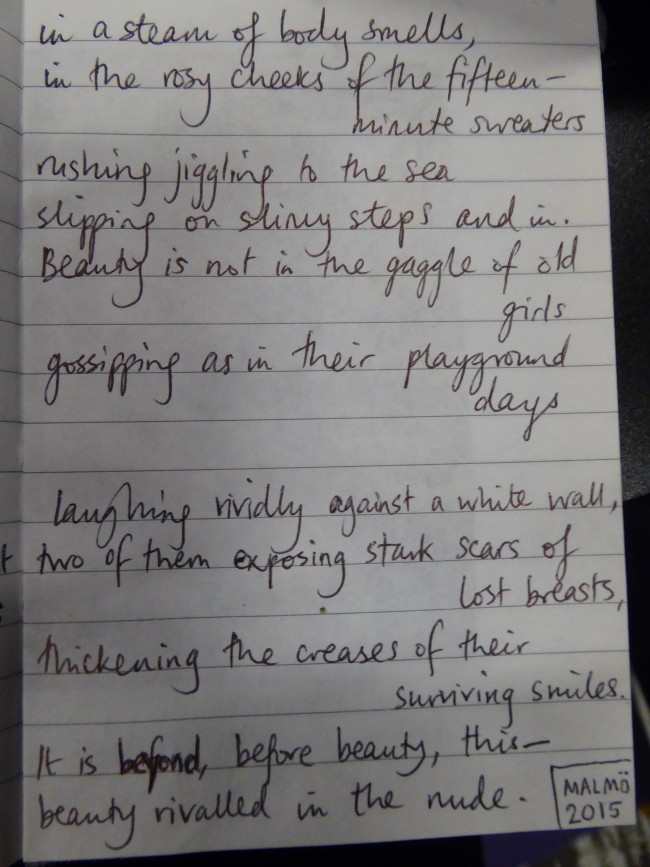 in a steam of body smells,
in the rosy cheeks of the fifteen-
minute sweaters
rushing jiggling to the sea
slipping on slimy steps and in.
Beauty is not in the gaggle of old
girls
gossipping as in their playground
days
laughing vividly against a white wall,
two of them exposing stark scars of
lost breasts,
thickening the creases of their
surviving smiles.
It is beyond, before beauty, this—
beauty rivalled in the nude.
MALMÖ
2015